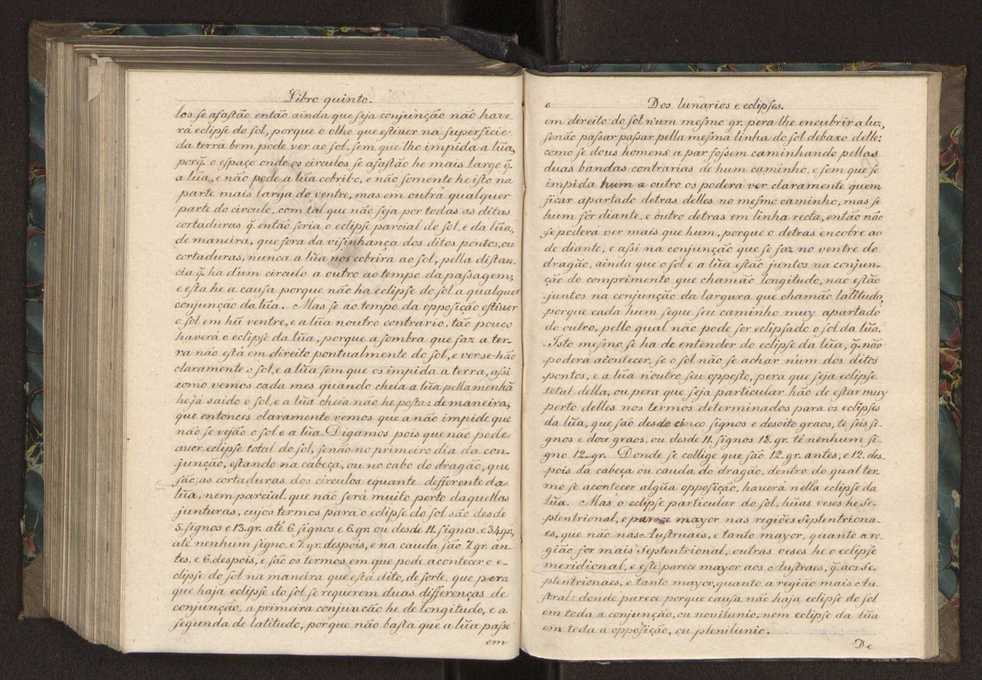 Libro quinto.
los se afastão então ainda que seja conjunção não have
rá eclipse do sol, porque o olho que estiver na superficie
da terra bem pode ver ao sol, sem que lho impida a lũa,
porq̃ o espaço onde os circulos se afastão he mais largo q̃.
a lũa, e não pode a lũa cobrilo, e não somente he isto na
parte mais larga do ventre, mas em outra qualquer
parte do circulo, com tal que não seja por todas as ditas
cortaduras q̃. então seria o eclipse parcial do sol, e da lũa,
de maneira, que fora da visinhança dos ditos pontos, ou
cortaduras, nunca a lũa nos cobrira ao sol, pella distan
cia q̃. ha dum circulo a outro ao tempo da passagem;
e esta he a causa porque não ha eclipse do sol a qualquer
conjunção da lũa. Mas se ao tempo da opposição estiver
o sol em hũ ventre, e a lũa noutro contrario. tão pouco
haverá o eclipse da lũa, porque a sombra que faz a ter-
ra não está em direito pontualmente do sol, e verse-hão
claramente o sol, e a lũa sem que os impida a terra, assi
como vemos cada mes quando cheia a lũa pella menhã
he já saido o sol, e a lũa cheia não he posta: de maneira,
que entonces claramente vemos que a não impide que
não se vejão o sol e a lũa. Digamos pois que não pode
aver eclipse total do sol, senão no primeiro dia da con-
junção, estando na cabeça, ou no cabo do dragão, que
são as cortaduras dos circulos equante defferente da
lũa, nem parcial, que não será muito perto daquellas
junturas, cujos termos para o eclipse do sol são desde
5. signos e 13. gr. até 6. signos e 6. gr. ou desde 11. signos, e
até nenhum signo, e 7. gr. despois, e na cauda são 7. gr. an
tes, e 6. despois, e são os termos em que pode acontecer o e-
clipse do sol na maneira que está dito, de sorte, que pera
que haja eclipse do sol se requerem duas differenças de
conjunção, a primeira conjuncão he de longitude, e a
segunda de latitude, porque não basta que a lũa passe
em
6
Dos lunarios e eclipses.
em direito do sol n'um mesmo gr. pera lhe encubrir a luz,
senão passar passar pella mesma linha do sol debaxo delle:
como se dous homens a par fossem caminhando pellas
duas bandas contrarias de hum caminho, e sem que se
impida hum a outro os poderá ver claramente quem
ficar apartado detras delles no mesmo caminho, mas se
hum for diante, e outro detras em linha recta, então não
se poderá ver mais que hum, porque o detras encobre ao
de diante, e assi na conjunção que se faz no ventre do
dragão, ainda que o sol e a lũa estão juntos na conjun-
ção de comprimento que chamão longitudo, não estão
juntos na conjunção da largura que chamão latitudo,
porque cada hum segue seu caminho muy apartado
do outro, pello qual não pode ser eclipsado o sol da lũa.
Isto mesmo se ha de entender do eclipse da lũa, q̃. não
poderá acontecer, se o sol não se achar n'um dos ditos
pontos, e a lũa n'outro seu opposto, pera que seja eclipse
total della, ou pera que seja particular hão de estar muy
perto delles nos termos determinados para os eclipses
da lũa, que são desde cinco signos e desoito graos, té seis si-
gnos e doze graos, ou desde 11. signos 18. gr. té nenhum si-
gno 12. gr. Donde se collige que são 12. gr. antes, e 12. des
pois da cabeça ou cauda do dragão, dentro do qual ter-
mo se acontecer algũa opposição, haverá nella eclipse da
lũa. Mas o eclipse particular do sol, hũas veses he Se-
ptentrional, e parece mayor nas regiões Septentriona
es, que nas Austraes, e tanto mayor, quanto a re-
gião for mais Septentrional, outras veses he o eclipse
meridional, e este parece mayor aos Austraes, q̃. aos Se-
ptentrionaes, e tanto mayor, quanto a região mais Au
stral: donde parece porque causa não haja eclipse do sol
em toda a conjunção, ou novilunio, nem eclipse da lũa
em toda a opposição, ou plenilunio.
De